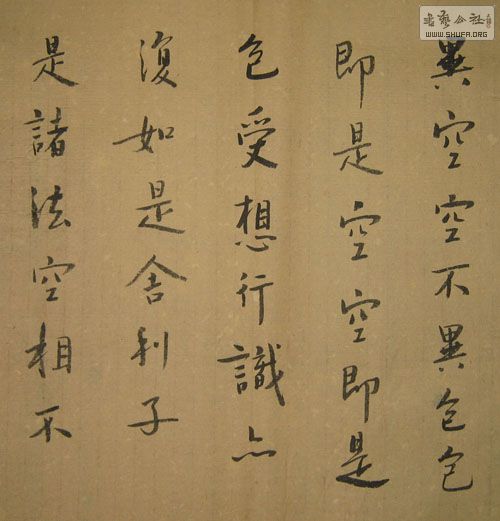 異空空不異色色
即是空空即是
色受想行識亦
復如是舍利子
是諸法空相不
WWW.SHUFA.ORG